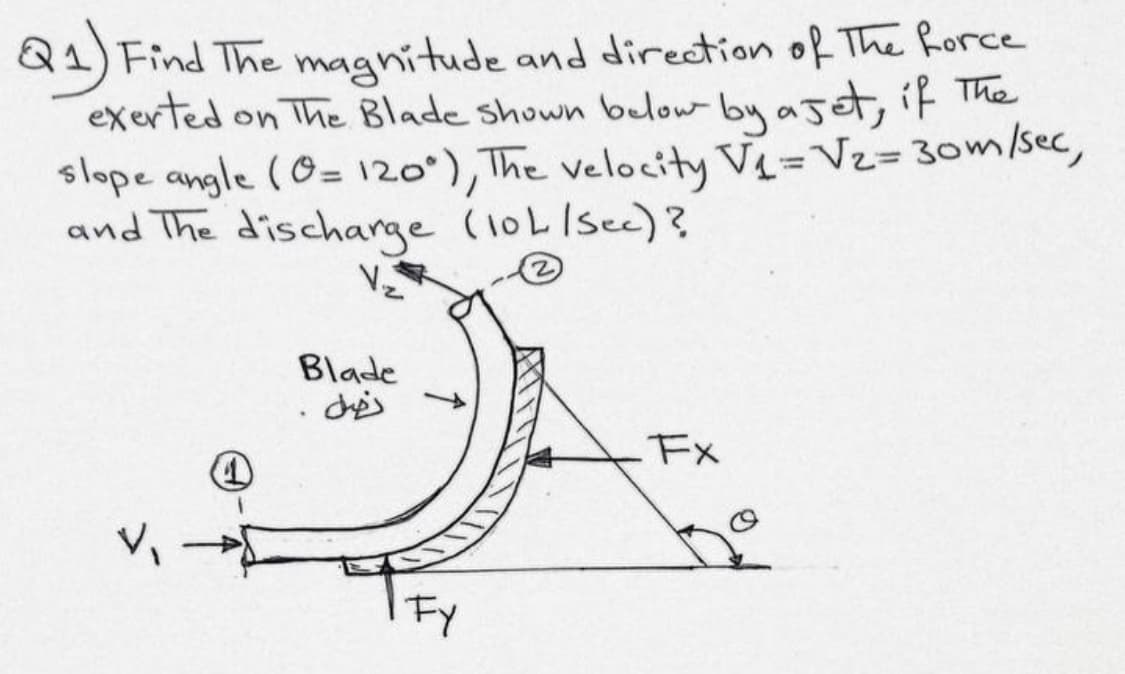 Q1) Find The magnitude and direction of The force
exerted on The Blade shown below by a Jet, if The
slope angle (θ= 120°), The velocity V1=V2=30m/sec,
and The discharge (10L/sec)?
V2
2
Blade
1
Fx
V1
θ
Fy